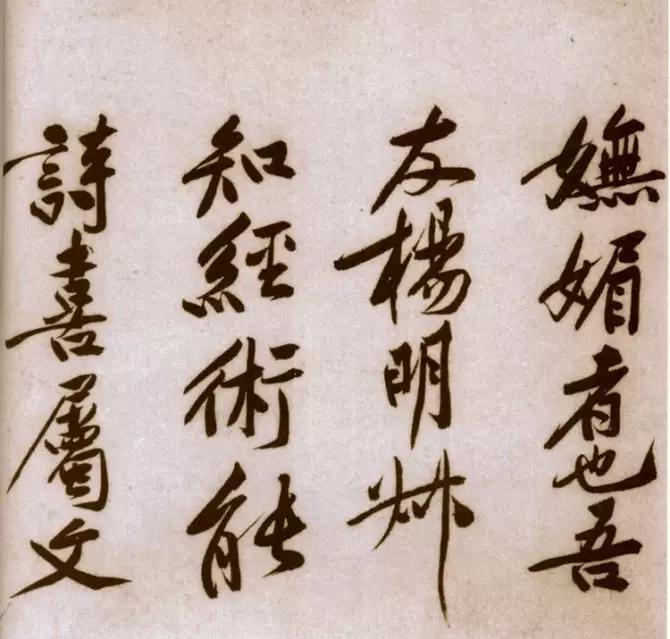 嫵媚者也吾
友楊明叔
知經術能
詩喜屬文